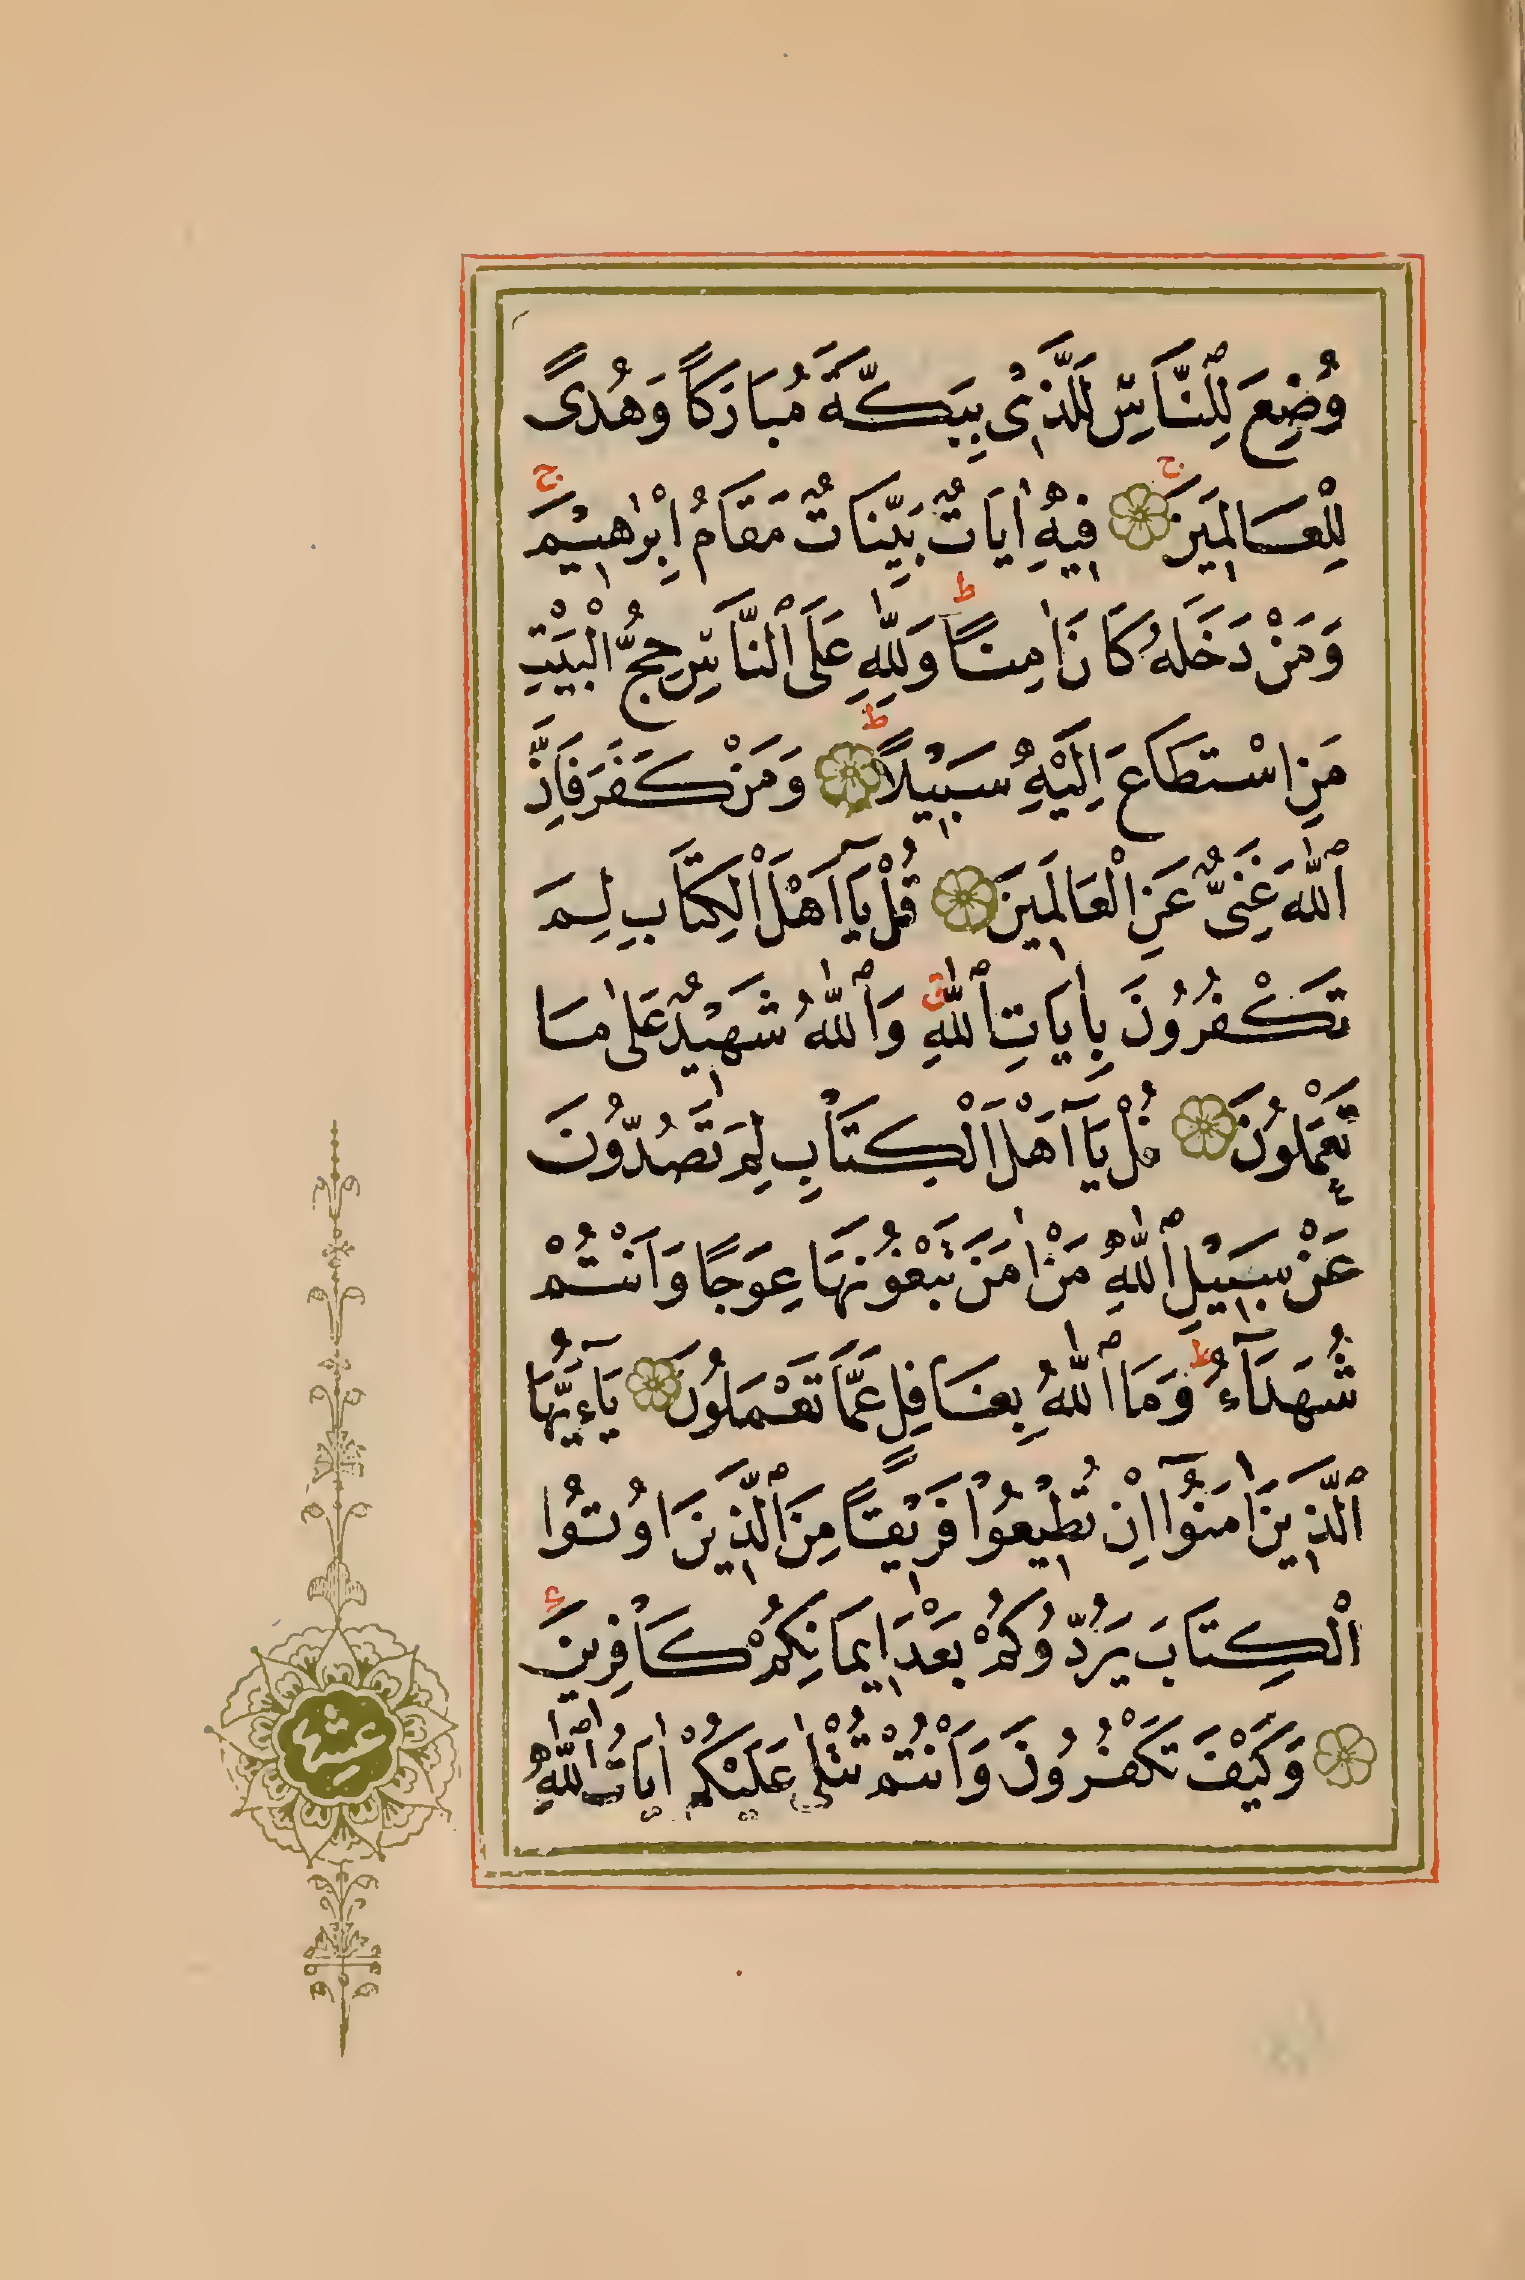 وُضِعَ لِلنَّاسِ لَلَّذِى بِبَكَّةَ مُبَارَكًا وَهُدًى
لِلْعَالَمِينَ ۝ فِيهِ اٰيَاتٌ بَيِّنَاتٌ مَقَامُ اِبْرٰهِيمَ ج
وَمَنْ دَخَلَهُ كَانَ اٰمِنًا ط وَلِلّٰهِ عَلَى ٱلنَّاسِ حِجُّ الْبَيْتِ
مَنِ اسْتَطَاعَ اِلَيْهِ سَبِيْلًا ط ۝ وَمَنْ كَفَرَ فَاِنَّ
ٱللّٰهَ غَنِىٌّ عَنِ الْعَالَمِينَ ۝ قُلْ يَآ اَهْلَ الْكِتَابِ لِمَ
تَكْفُرُونَ بِاٰيَاتِ ٱللّٰهِ ق وَٱللّٰهُ شَهِيْدٌ عَلٰى مَا
تَعْمَلُونَ ۝ قُلْ يَآ اَهْلَ الْكِتَابِ لِمَ تَصُدُّونَ
عَنْ سَبِيْلِ ٱللّٰهِ مَنْ اٰمَنَ تَبْغُونَهَا عِوَجًا وَاَنْتُمْ
شُهَدَآءُ ط وَمَا ٱللّٰهُ بِغَافِلٍ عَمَّا تَعْمَلُونَ ۝ يَآءَيُّهَا
ٱلَّذِينَ اٰمَنُوٓا اِنْ تُطِيْعُوْا فَرِيْقًا مِنَ ٱلَّذِينَ اُوتُوا
الْكِتَابَ يَرُدُّوكُمْ بَعْدَ اِيمَانِكُمْ كَافِرِينَ
۝ وَكَيْفَ تَكْفُرُونَ وَاَنْتُمْ تُتْلٰى عَلَيْكُمْ اٰيَاتُ ٱللّٰهِ